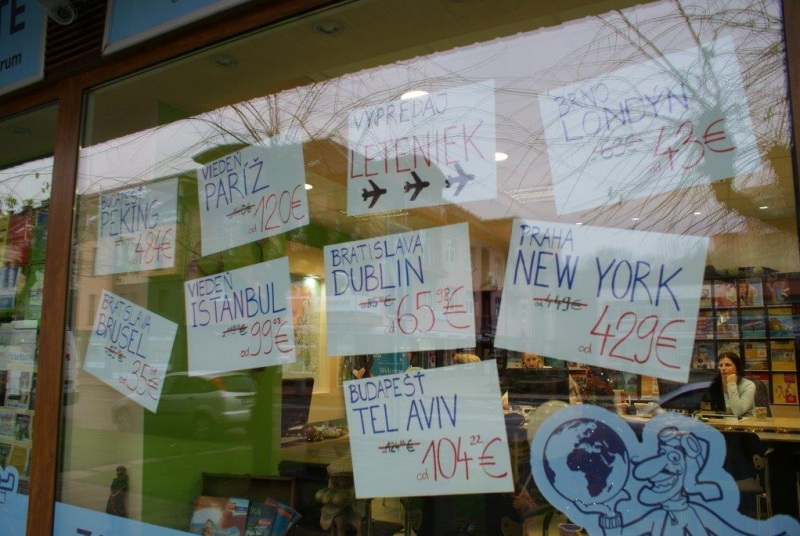 rum
VÝPREDAJ
LETENIEK
BRNO
LONDÝN
63€
od 43€
VIEDEŇ
PARÍŽ
od 120€
BUDAPEŠŤ
PEKING
od 484€
BRATISLAVA
DUBLIN
85€
od 65 98 €
PRAHA
NEW YORK
449€
od 429€
VIEDEŇ
ISTANBUL
od 99 03 €
BRATISLAVA
BRUSEL
od 35€
BUDAPEŠŤ
TEL AVIV
124 11 €
od 104 22 €